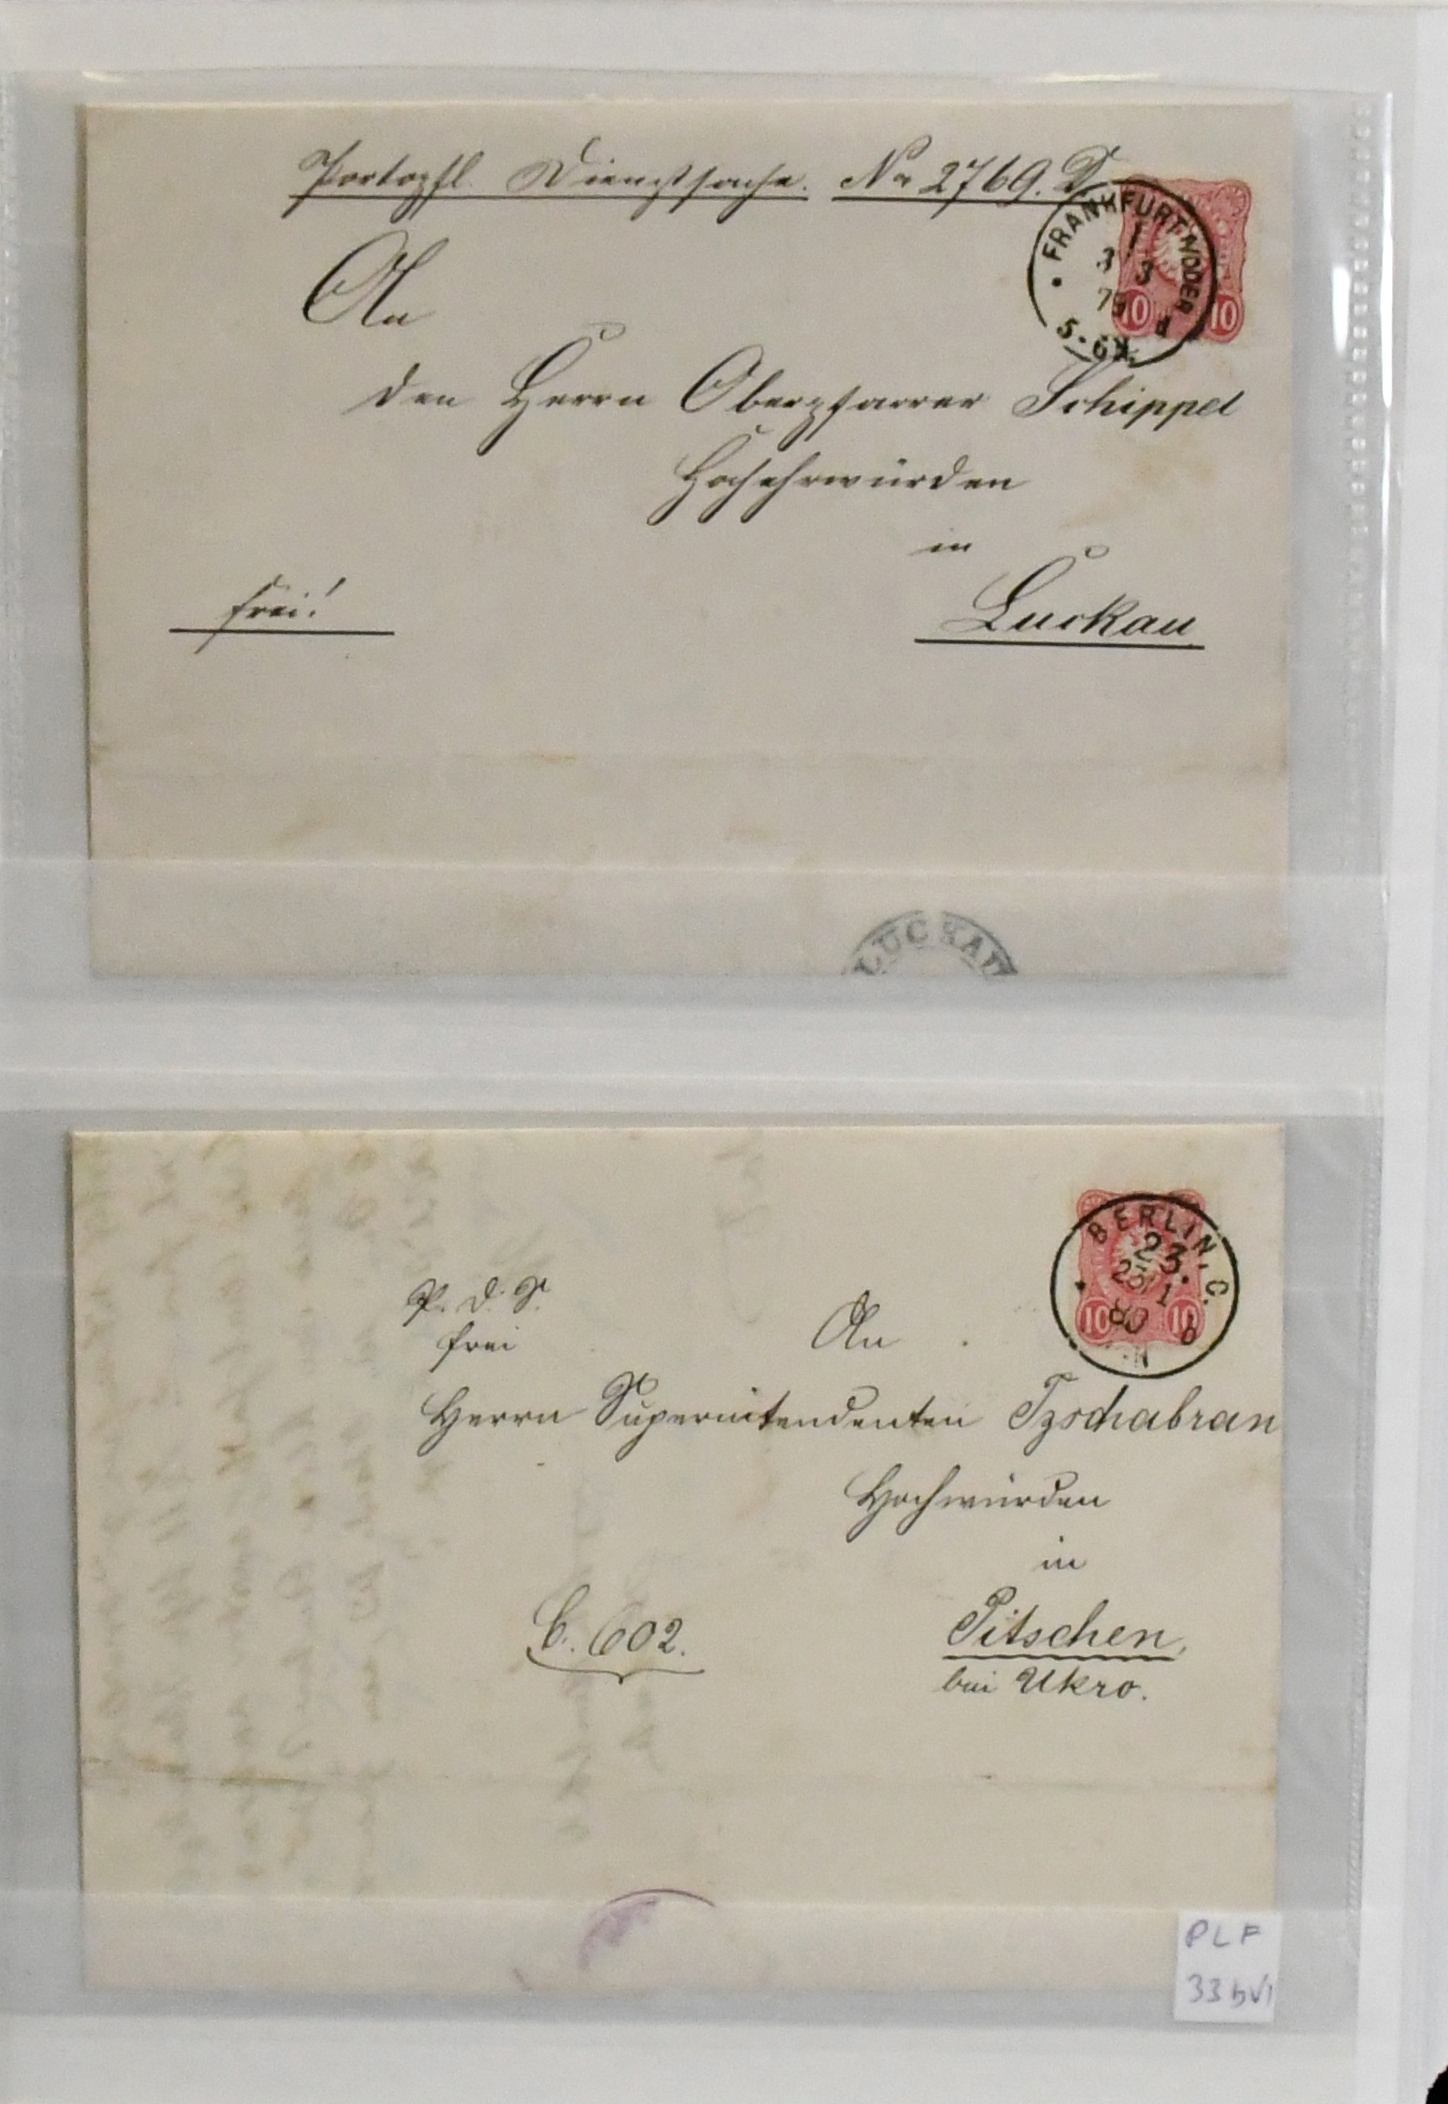 Portopfl. Dienstsache. No 2769. D.
FRANKFURT A/ODER
3 3
79
5-6N.
10 10
An
den Herrn Oberpfarrer Schippel
Hochehrwürden
in
frei!
Luckau.
LUCKAU
BERLIN, C.
23.
23 1
80 b
N
10 10
P. d. S.
frei
An
Herrn Superintendenten Tzschabran
Hochwürden
in
C. 602.
Pitschen,
bei Ukro.
PLF
33bVI